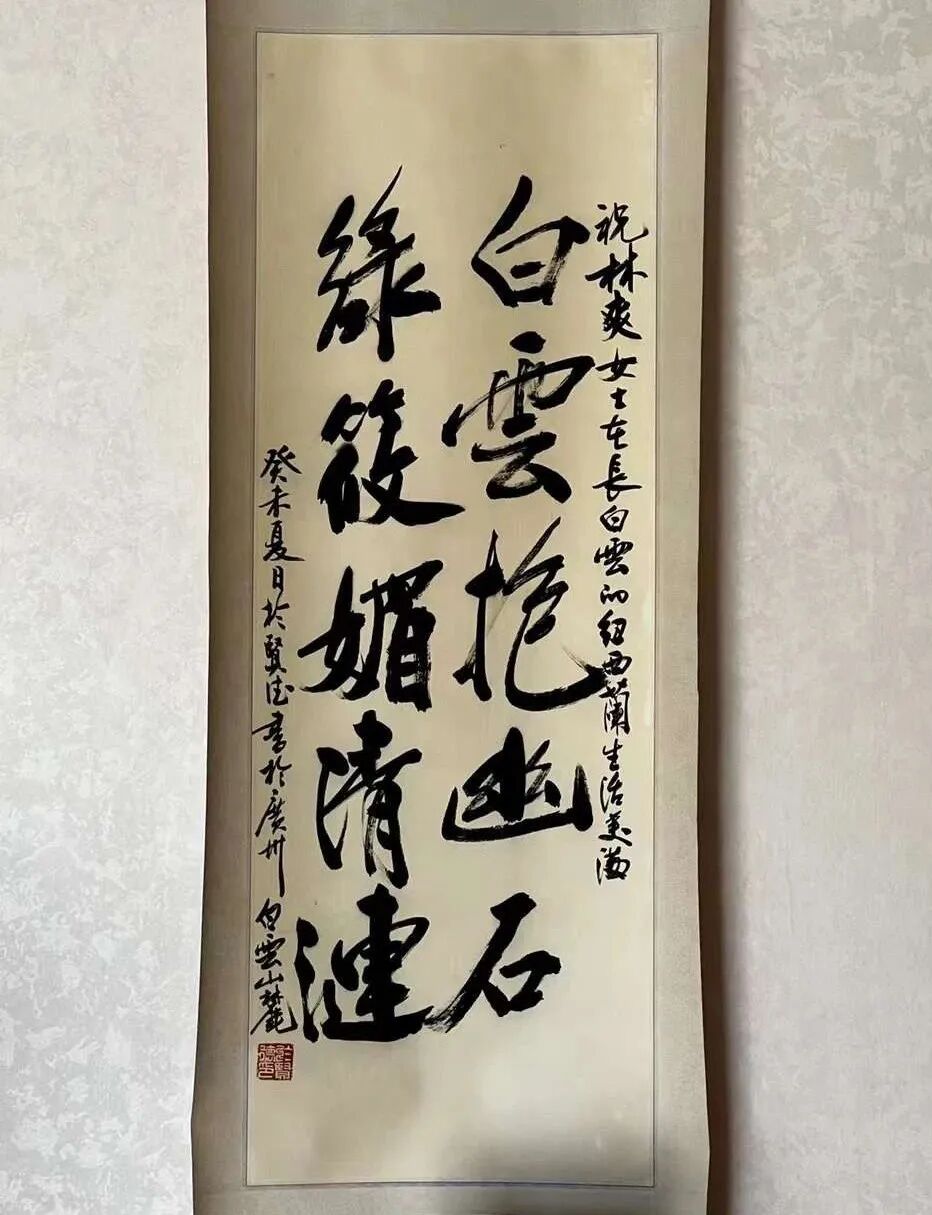 祝林爽女士在長白雲的紐西蘭生活美滿
白雲抱幽石
綠筱媚清漣
癸未夏日於賢德書於廣州白雲山麓
於賢德印